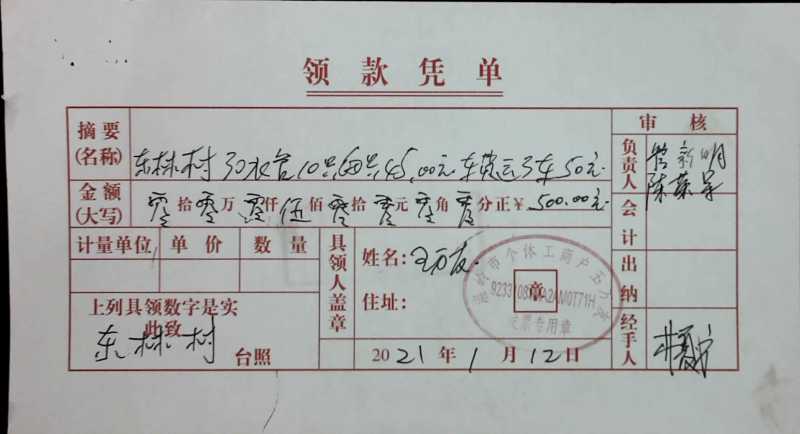 领款凭单
审核
摘要(名称) 东林村 10只每只45.00元 车 50元
负责人 新明
金额(大写) 零拾零万零仟伍佰零拾零元零角零分正¥500.00元
会计
计量单位 单价 数量
具领人盖章
姓名:王万友
住址:
章
市个体工商户
发票专用章
出纳
上列具领数字是实
此致
东林村 台照
2021年1月12日
经手人